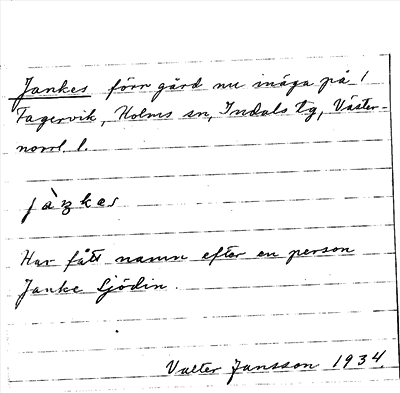 Jankes förr gård nu inäga på /
Fagervik, Holms sn, Indals tg, Väster-
norrl. l.
jàŋkes
Har fått namn efter en person
Janke Sjödin.
Valter Jansson 1934.